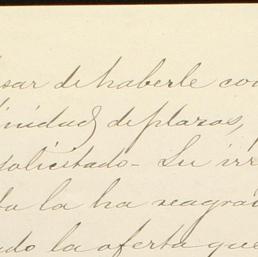 sar de haberle con
inidad de plazas,
solicitado - Su irr
to la ha reagra
ado la oferta que